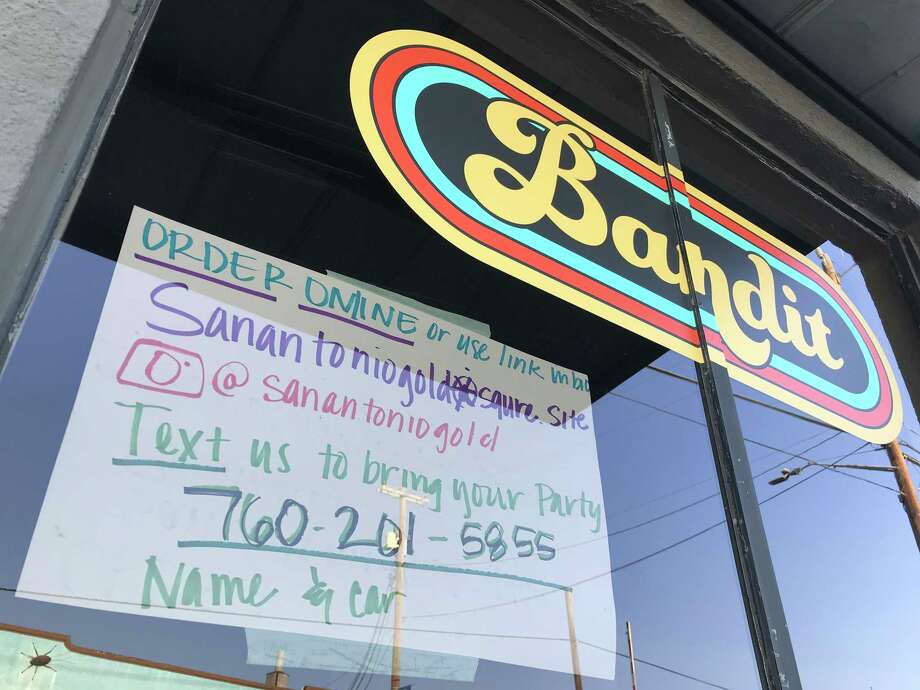 Bandit
ORDER ONLINE or use link in bio
Sanantoniogold.squre.site
@sanantoniogold
Text us to bring your Party
760-201-5855
Name & car